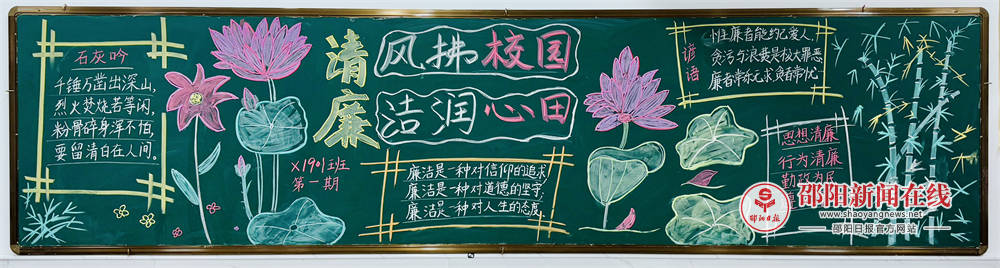 石灰吟
千锤万凿出深山,
烈火焚烧若等闲,
粉骨碎身浑不怕,
要留清白在人间。
清廉
风拂校园
洁润心田
X1901班
第一期
廉洁是一种对信仰的追求
廉洁是一种对道德的坚守,
廉洁是一种对人生的态度。
谚语
性廉者能约己爱人,
贪污与浪费是极大罪恶
廉者常乐无求,贪者常忧
思想清廉
行为清廉
勤政为民
邵阳日报
邵阳新闻在线
www.shaoyangnews.net
邵阳日报官方网站